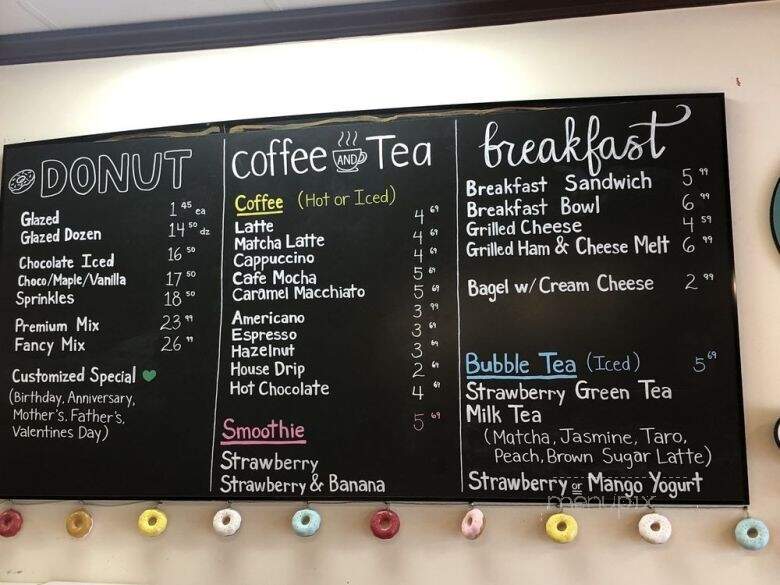 DONUT
Glazed 1 45 ea
Glazed Dozen 14 50 dz
Chocolate Iced 16 50
Choco/Maple/Vanilla 17 50
Sprinkles 18 50
Premium Mix 23 99
Fancy Mix 26 99
Customized Special
(Birthday, Anniversary,
Mother's, Father's,
Valentines Day)
Coffee AND Tea
Coffee (Hot or Iced)
Latte 4 69
Matcha Latte 4 69
Cappuccino 4 69
Cafe Mocha 5 69
Caramel Macchiato 5 69
Americano 3 99
Espresso 3 69
Hazelnut 3 69
House Drip 2 69
Hot Chocolate 4 69
Smoothie 5 69
Strawberry
Strawberry & Banana
breakfast
Breakfast Sandwich 5 99
Breakfast Bowl 6 99
Grilled Cheese 4 59
Grilled Ham & Cheese Melt 6 99
Bagel w/ Cream Cheese 2 99
Bubble Tea (Iced) 5 69
Strawberry Green Tea
Milk Tea
(Matcha, Jasmine, Taro,
Peach, Brown Sugar Latte)
Strawberry or Mango Yogurt
menupix